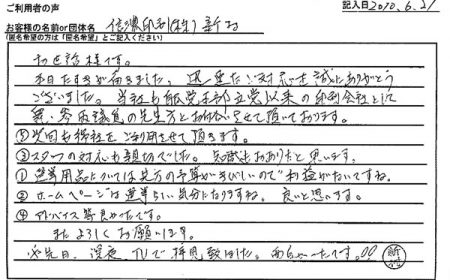 ご利用者の声
記入日2010.6.21
お客様の名前or団体名 信濃印刷(株)新村
(匿名希望の方は「匿名希望」とご記入ください)
お世話様です。
本日たすきが届きました。迅速なご対応誠にありがとう
ございました。当社も 党本部立党以来の印刷会社として
衆・参両議員の先生方とお付合いさせて頂いております。
⑤次回も御社をご利用させて頂きます。
③スタッフの対応も親切でした。知識もおありだと思います。
①選挙用品については先方の予算がきびしいので利益がないですね。
②ホームページは選挙らしい気分になりますね。良いと思います。
④アドバイス等良かったです。
またよろしくお願いします。
先日、深夜TVで拝見致しました。面白かったです。